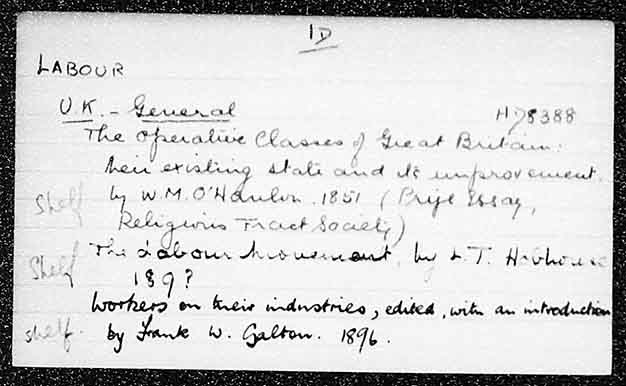 1D
LABOUR
U.K. - General HD8388
The Operative Classes of Great Britain:
their existing state and its improvement.
Shelf by W.M. O'Hanlon. 1851 (Prize Essay,
Religious Tract Society)
Shelf The Labour Movement, by L.T. Hobhouse
189?
Workers on their industries, edited, with an introduction
shelf. by Frank W. Galton. 1896.